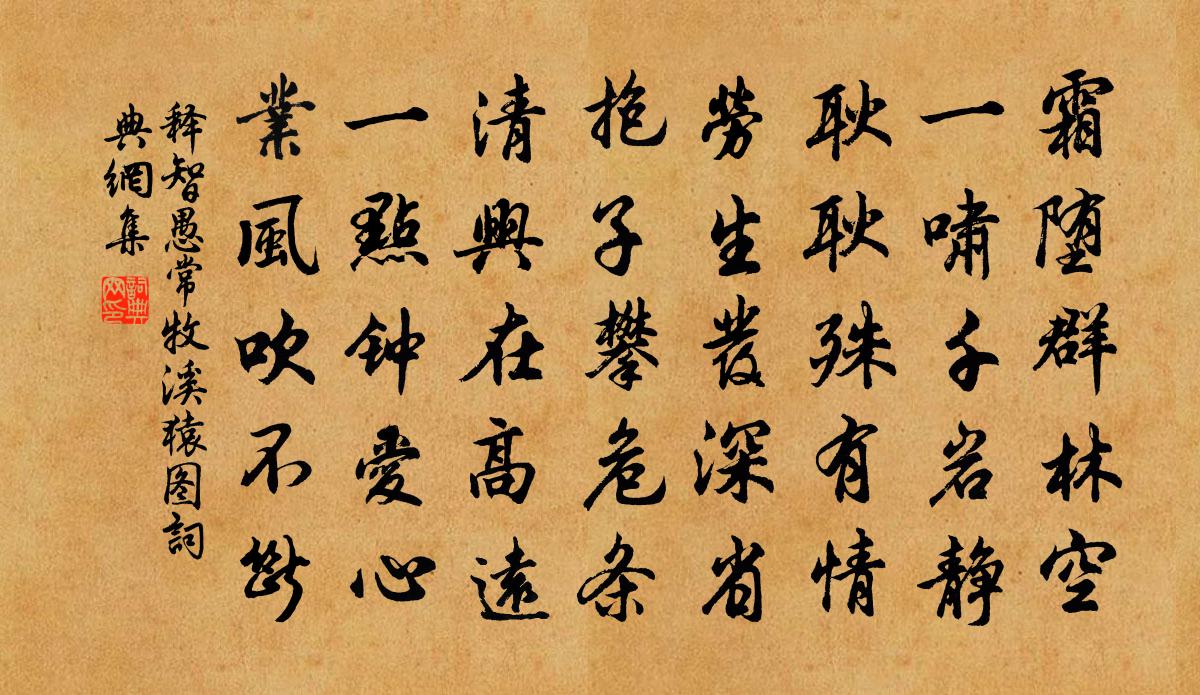 霜堕群林空
一啸千岩静
耿耿殊有情
勞生發深省
抱子攀危条
清興在高遠
一點钟愛心
業風吹不斷
释智愚常牧溪猿图詞
典網集
詞典
网印